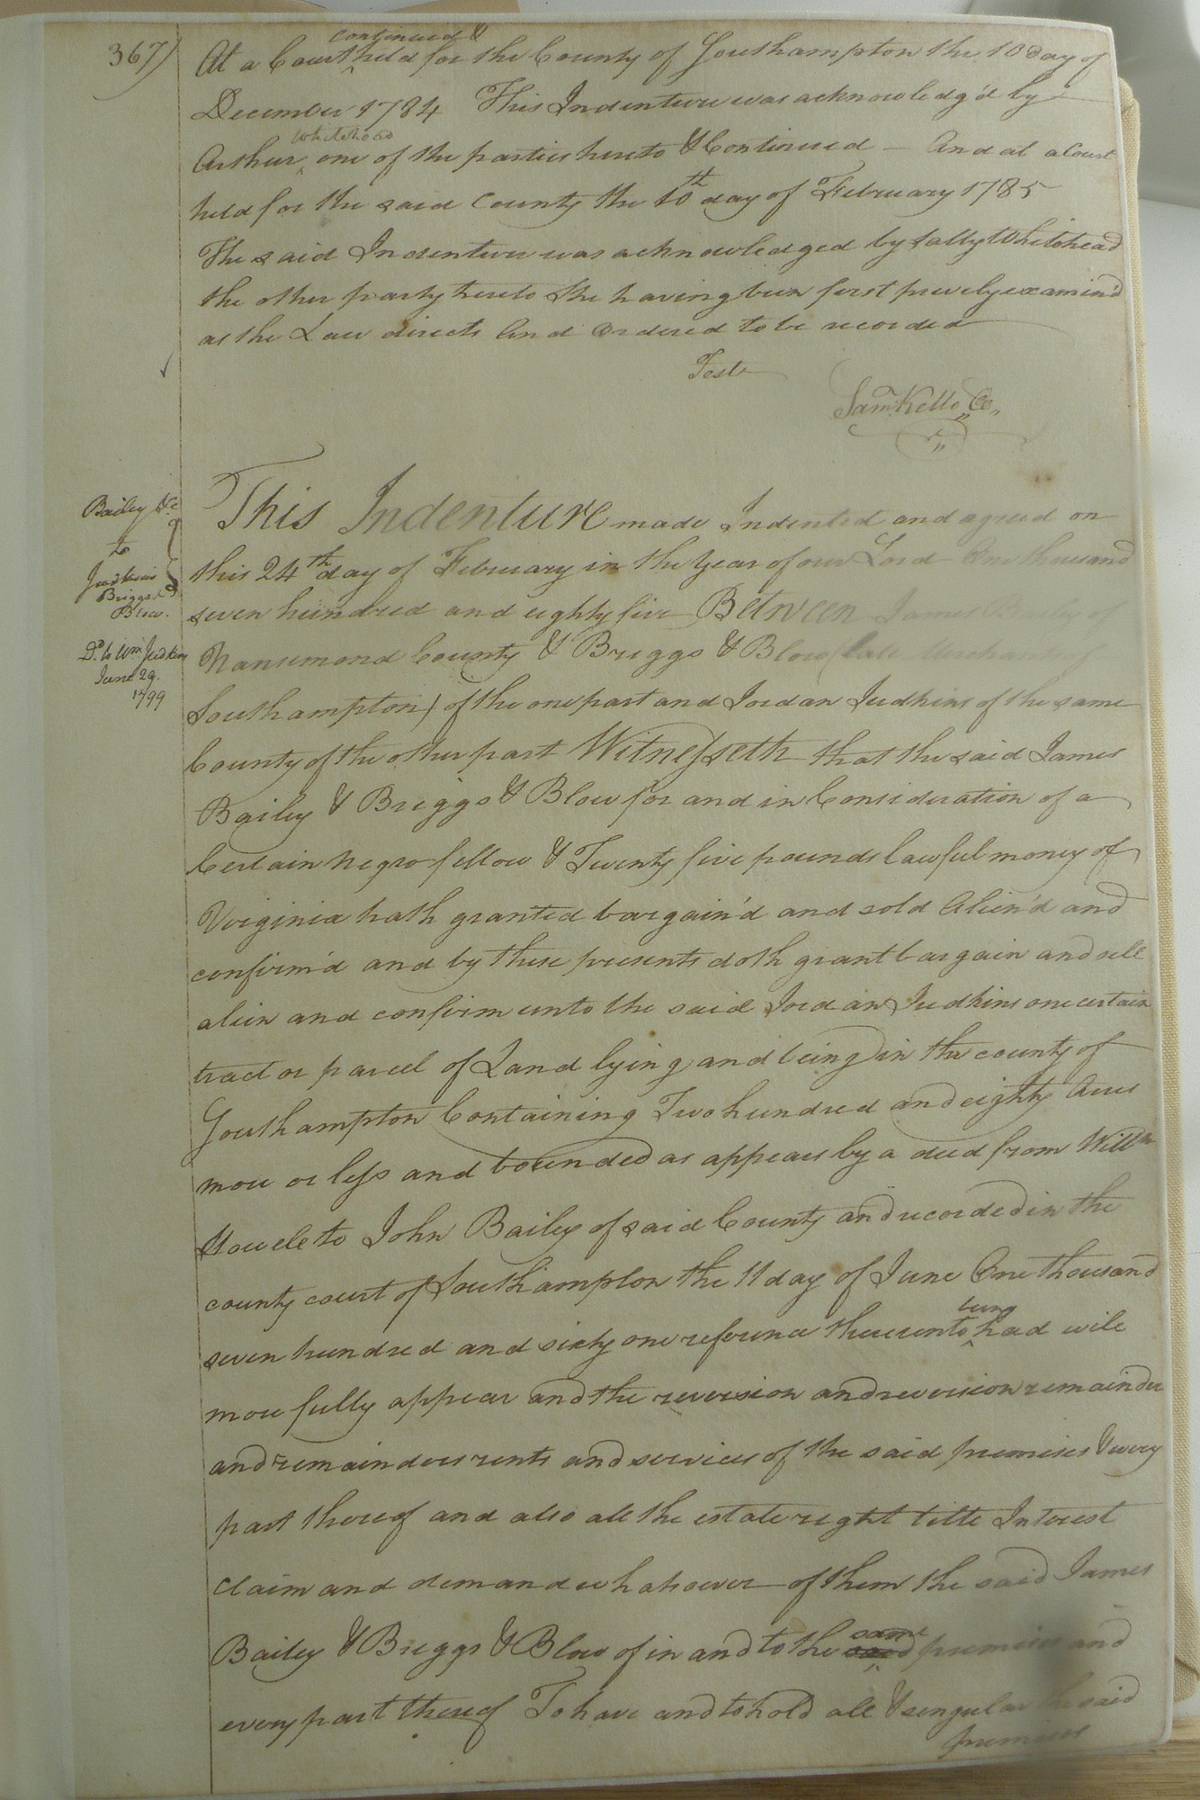 367)
continued &
At a Court held for the County of Southampton the 10 day of
December 1784 This Indenture was acknowledg'd by
Whitehead
Arthur, one of the parties hereto & Continued - And at a Court
held for the said County the 10th day of February 1785
The said Indenture was acknowledged by Sally Whitehead
the other party hereto She having been first prively examin'd
as the Law directs And Ordered to be recorded
Teste
Sam: Kello Cc,,
Bailey &c
to
Judkins
Briggs &
Blow.
Dd. to Wm Judkins
June 29.
1799
This Indenture made Indented and agreed on
this 24th day of February in the Year of our Lord One thousand
seven hundred and eighty five Between James Bailey of
Nansemond County & Briggs & Blow (late Merchants of
Southampton) of the one part and Jordan Judkins of the same
County of the other part Witnesseth that the said James
Bailey & Briggs & Blow for and in Consideration of a
Certain Negro fellow & Twenty five pounds lawful money of
Virginia hath granted bargain'd and sold Alien'd and
confirm'd and by these presents doth grant bargain and sell
alien and confirm unto the said Jordan Judkins one certain
tract or parcel of Land lying and being in the county of
Southampton Containing Two hundred and eighty Acres
more or less and bounded as appears by a deed from Willm
to John Bailey of said County and recorded in the
county court of Southampton the 11 day of June One thousand
being
seven hundred and sixty one reference thereunto had will
more fully appear and the reversion and reversion remainder
and remainders rents and services of the said premises & every
part thereof and also all the estate right title Interest
claim and demand whatsoever of them the said James
same
Bailey & Briggs & Blow of in and to the said premises and
every part thereof To have and to hold all & singular the said
premises